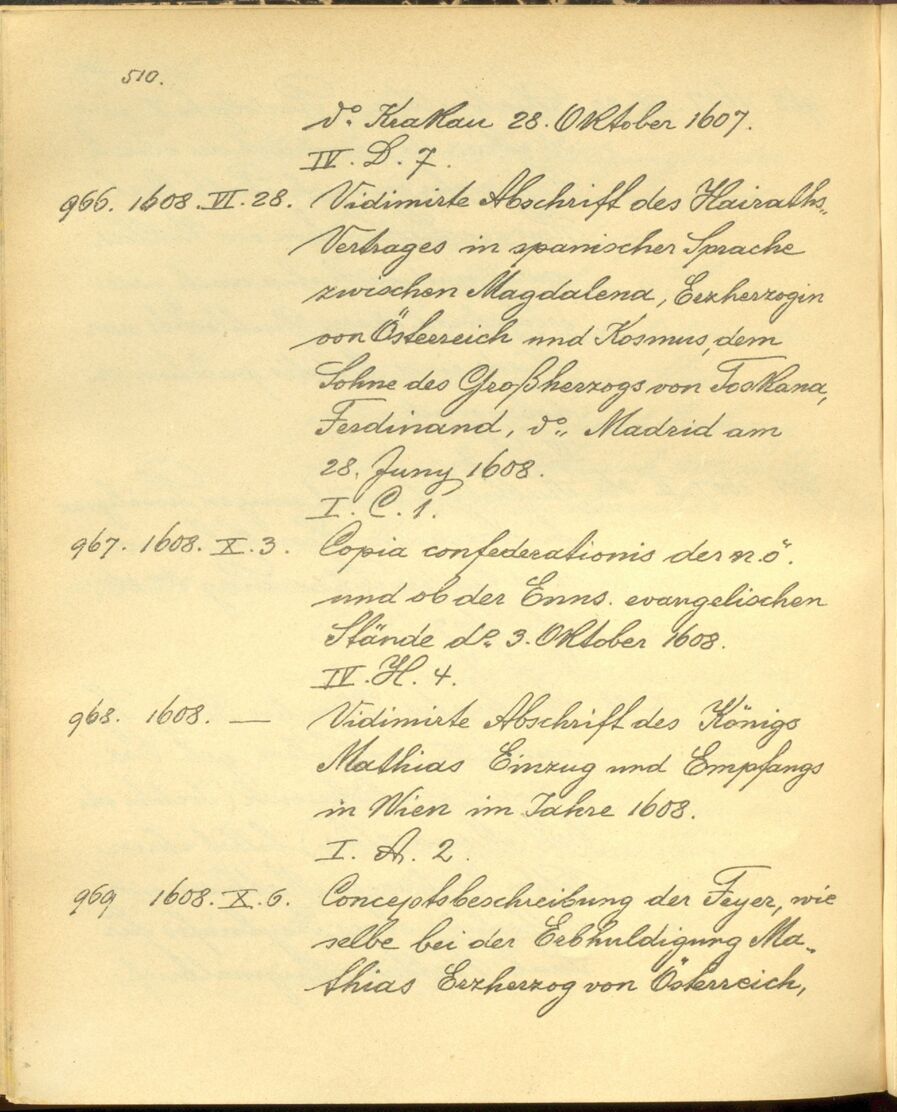 510.
do. Krakau 28. Oktober 1607.
IV. D. 7.
966. 1608. VI. 28. Vidimirte Abschrift des Hairaths„
Vertrages in spanischer Sprache
zwischen Magdalena, Erzherzogin
von Österreich und Kosmus, dem
Sohne des Großherzogs von Toskana,
Ferdinand, do„ Madrid am
28. Juny 1608.
I. C. 1.
967. 1608. X. 3. Copia confederationis der n.ö.
und ob der Enns. evangelischen
Stände do. 3. Oktober 1608.
IV. H. 4.
968. 1608. — Vidimirte Abschrift des Königs
Mathias Einzug und Empfangs
in Wien im Jahre 1608.
I. A. 2.
969 1608. X. 6. Conceptsbeschreibung der Feyer, wie
selbe bei der Erbhuldigung Ma„
thias Erzherzog von Österreich,